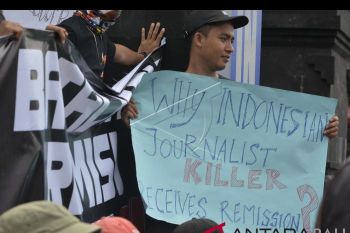 WHY INDONESIAN
JOURNALIST
KILLER
RECEIVES REMISSION?
BA
RMISI
ANTARA BALI